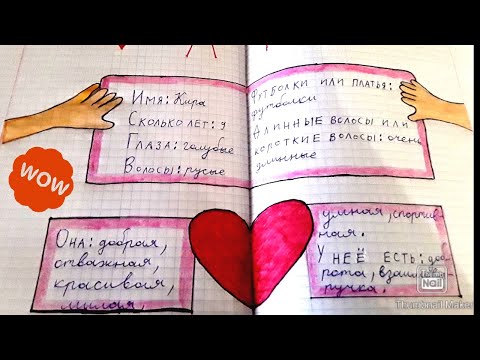 Имя: Кира
Сколько лет: 9
Глаза: голубые
Волосы: русые
Футболки или платья:
футболки
Длинные волосы или
короткие волосы: очень
длинные
WOW
Она: добрая,
отважная,
красивая,
милая,
умная, спортив-
ная.
У неё есть: доб
рота, взаимов-
ручка.
Nail
Thumbnail Maker